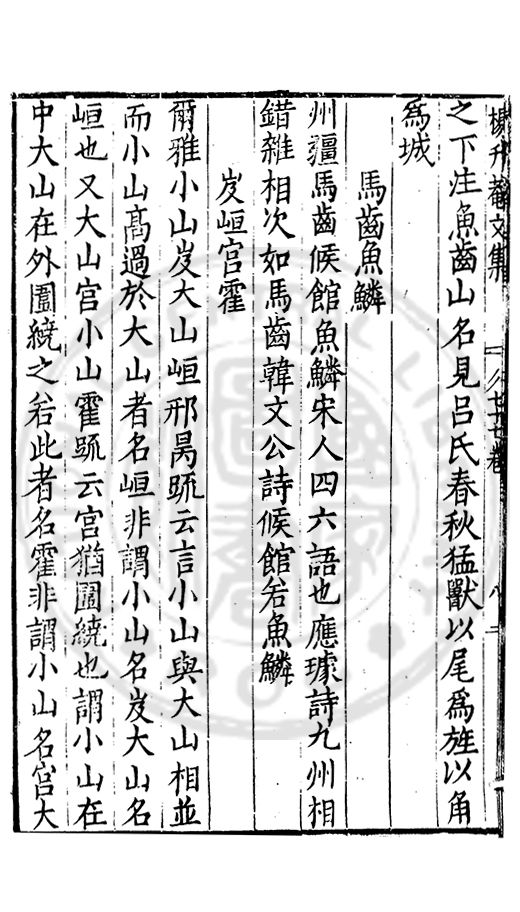 楊升菴文集 八 七十七卷 八 二
之下注魚齒山名見吕氏春秋猛獸以尾爲旌以角
爲城
馬齒魚鱗
州疆馬齒候館魚鱗宋人四六語也應璩詩九州相
錯雜相次如馬齒韓文公詩候館若魚鱗
岌峘宫霍
爾雅小山岌大山峘邢昺䟽云言小山與大山相並
而小山髙過於大山者名峘非謂小山名岌大山名
峘也又大山宫小山霍䟽云宫猶圍繞也謂小山在
中大山在外圍繞之若此者名霍非謂小山名宫大